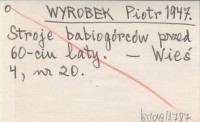 WYROBEK Piotr 1947.
Stroje babiogórców przed
60-ciu laty. — Wieś
4, nr 20.